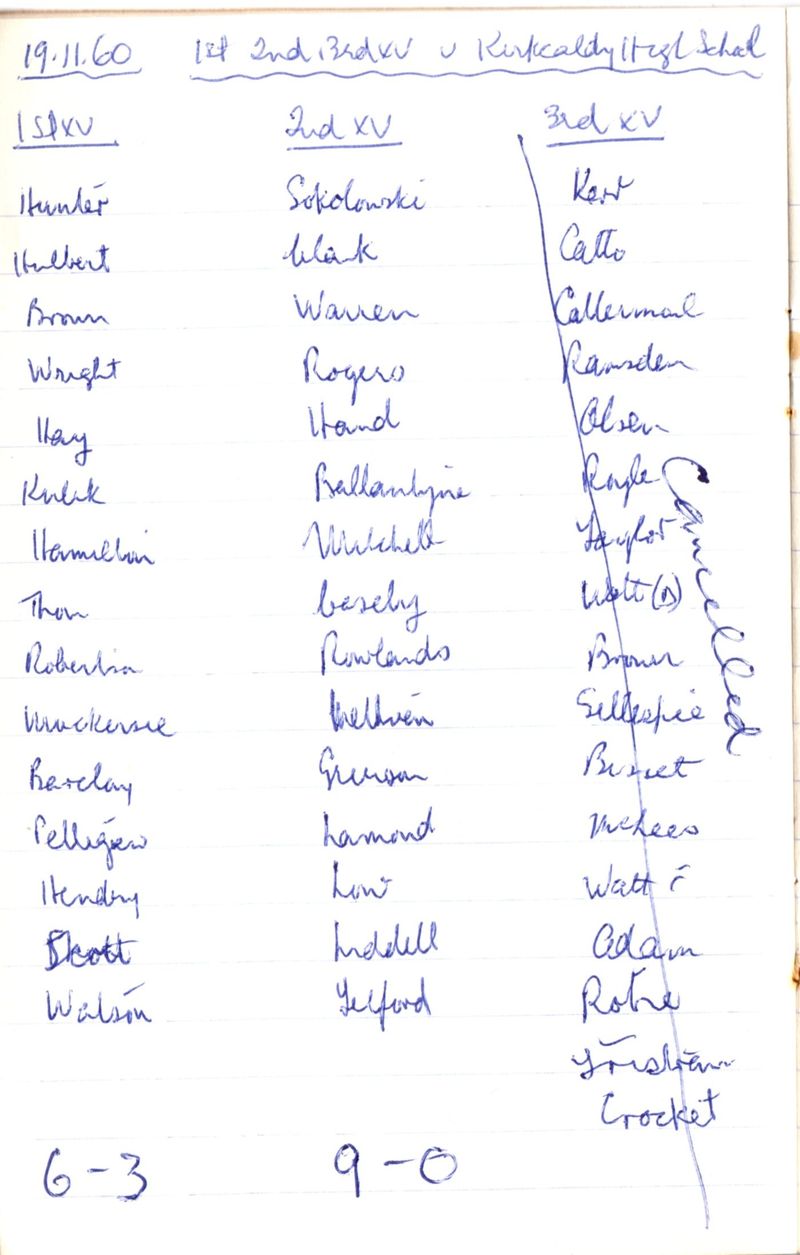 19.11.60 1st 2nd 3rd XV v Kirkcaldy High School
1st XV 2nd XV 3rd XV
Hunter Sokolowski Kerr
Hulbert Clark Catto
Brown Warren Callermail
Wright Rogers Ramsden
Hay Hand Olsen
Kulik Ballantyne Royle
Hamilton Mitchell Taylor
Thom Caseby Watt (D)
Robertson Rowlands Brown
Muckersie Gillespie
Barclay Grierson Bisset
Pelligrew Lamond McLees
Hendry Low Watt
Scott Liddell Adam
Watson Telford Robre
Tristram
Crocket
Cancelled
6-3 9-0